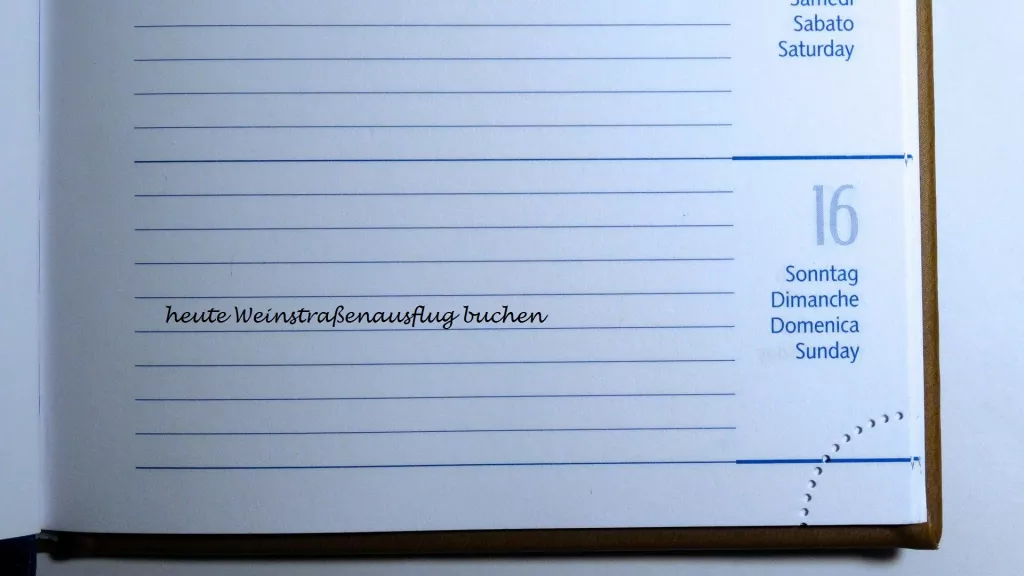 Samedi
Sabato
Saturday
16
Sonntag
Dimanche
Domenica
Sunday
heute Weinstraßenausflug buchen